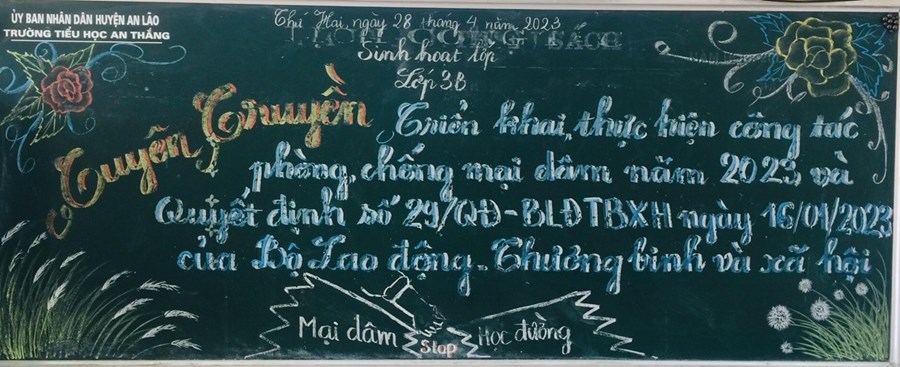 ỦY BAN NHÂN DÂN HUYỆN AN LÃO
TRƯỜNG TIỂU HỌC AN THẮNG
Thứ Hai, ngày 28 tháng 4 năm 2023
Sinh hoạt lớp
Lớp 3B
Tuyên Truyền
Triển khai, thực hiện công tác
phòng, chống mại dâm năm 2023 và
Quyết định số 29/QĐ-BLĐTBXH ngày 16/01/2023
của Bộ Lao động - Thương binh và xã hội
Mại dâm Stop Học đường